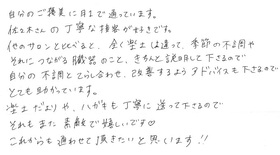 自分のご褒美に月1で通っています。
佐々木さんの丁寧な接客が好きです。
他のサロンとくらべると、全く楽土は違って、季節の不調や
それにつながる臓器のこと、きちんと説明して下さるので
自分の不調とてらし合わせ、改善するようアドバイスも下さるので
とても助かっています。
楽土だよりや、ハガキも丁寧に送って下さるので
それもまた素敵で嬉しいです♡
これからも通わせて頂きたいと思います!!